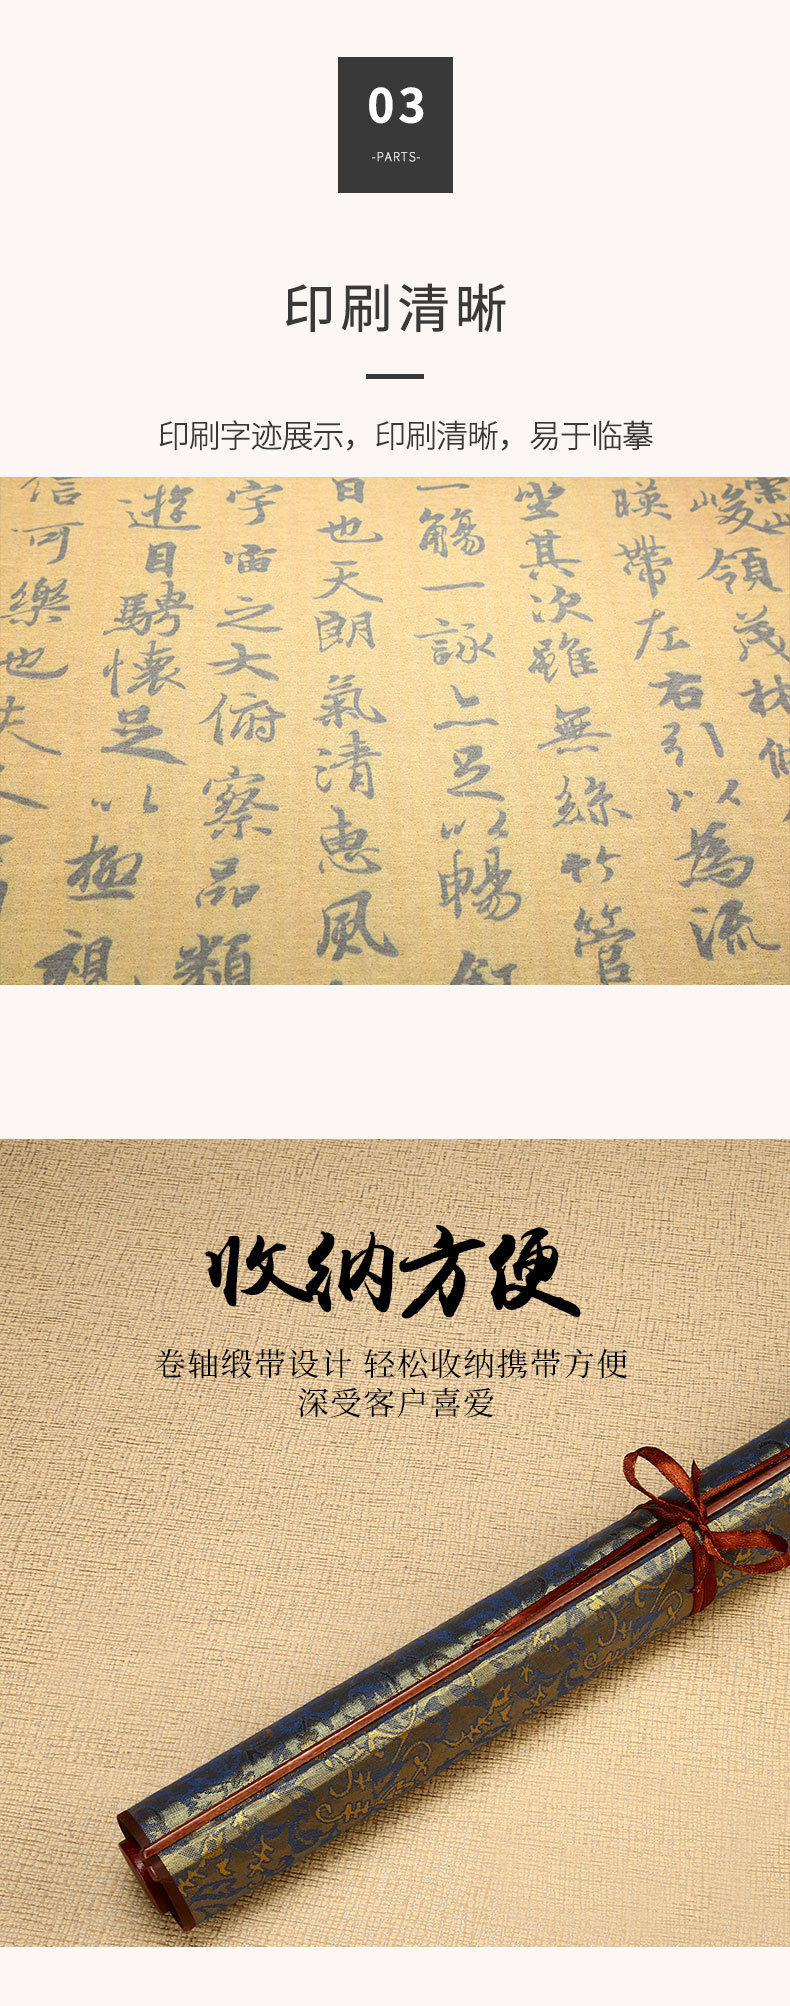 03
-PARTS-
印刷清晰
印刷字迹展示，印刷清晰，易于临摹
崇山
峻領茂林修
暎帶左右引以為流
坐其次雖無絲竹管
一觴一詠亦足以暢
日也天朗氣清惠風
字宙之大俯察品類
遊目騁懷足以極視
信可樂也夫
收纳方便
卷轴缎带设计 轻松收纳携带方便
深受客户喜爱